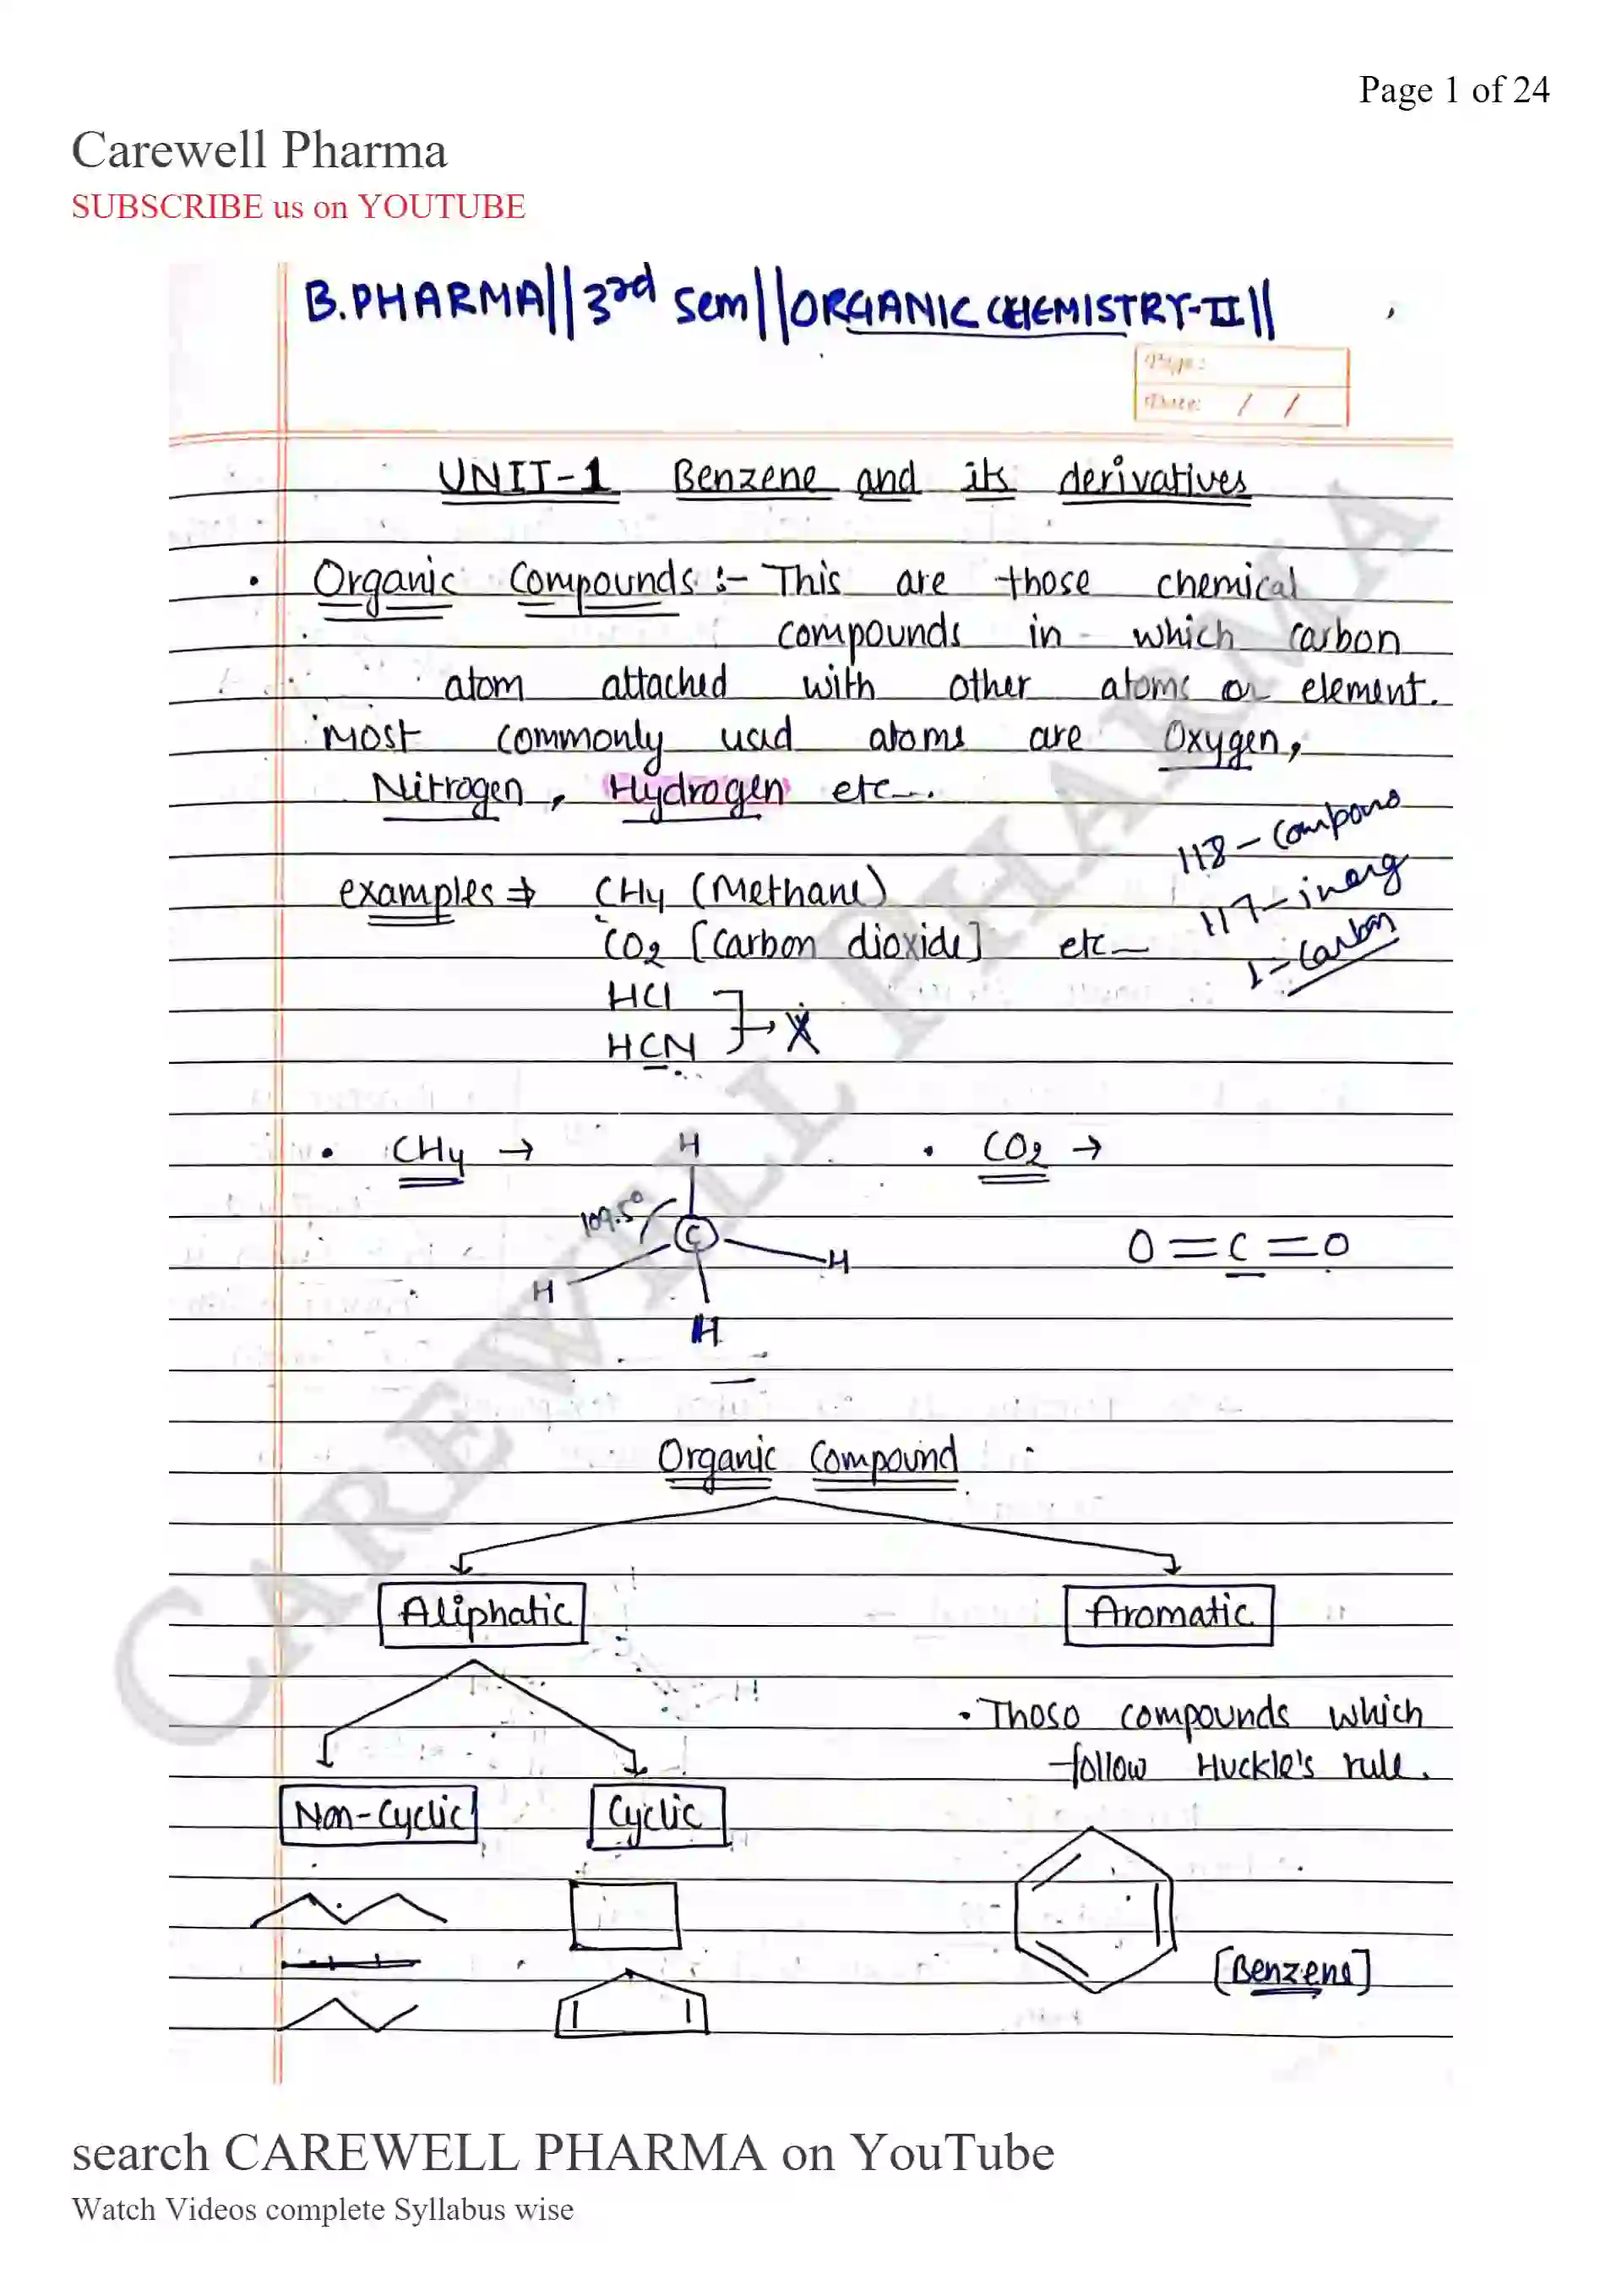 Page 1 of 24
Carewell Pharma
SUBSCRIBE us on YOUTUBE
B.PHARMA||3rd Sem||ORGANIC CHEMISTRY-II||
Page:
Date: / /
UNIT-1 Benzene and its derivatives
• Organic Compounds :- This are those chemical
compounds in which carbon
atom attached with other atoms or element.
Most commonly used atoms are Oxygen,
Nitrogen, Hydrogen etc...
118 - Compound
examples ⇒ CH4 (Methane)
117 - inorg
CO2 [Carbon dioxide] etc—
1 - Carbon
HCl
HCN ] → X
• CH4 → • CO2 →
H
109.5°
C
H H
H
O = C = O
Organic Compound
Aliphatic Aromatic
• Those compounds which
follow Huckle's rule.
Non-Cyclic Cyclic
[Benzene]
CAREWELL PHARMA
search CAREWELL PHARMA on YouTube
Watch Videos complete Syllabus wise